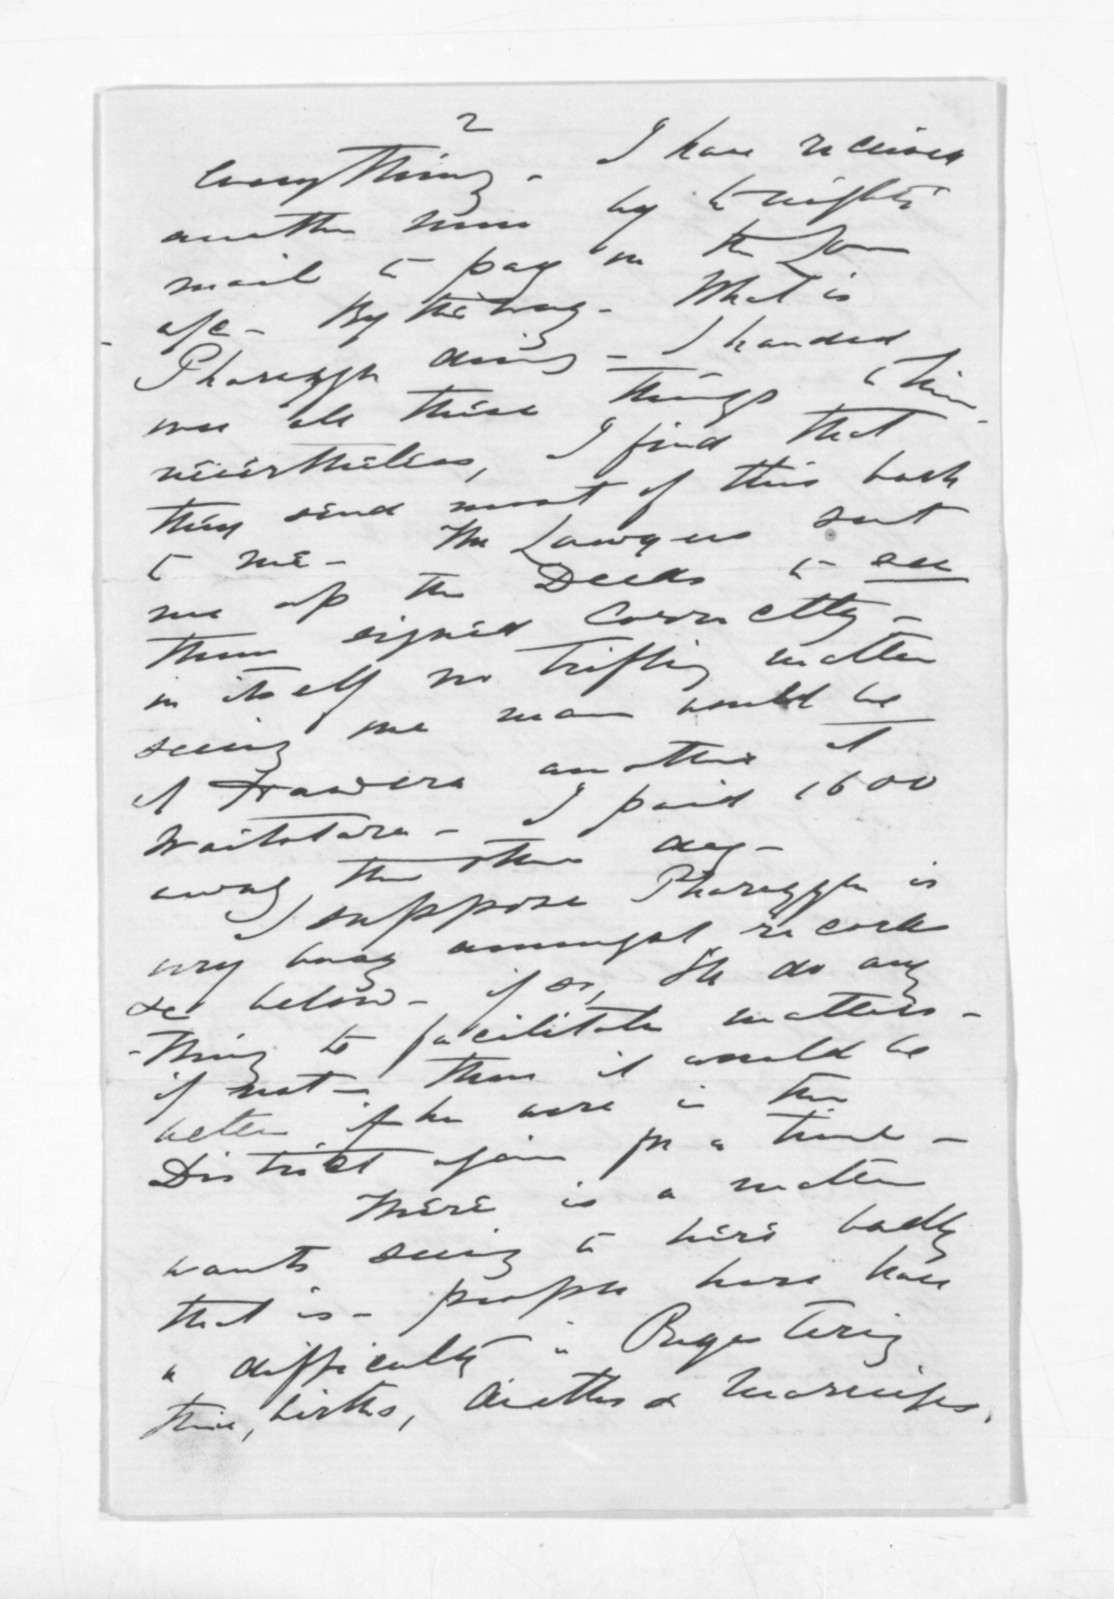 2
everything - I have received
another sum by to night's
mail to pay in the same
a/c - By the way - What is
Pharazyn doing - I handed
over all these things to him -
nevertheless, I find that
they send most of this back
to me - The Lawyers sent
me up the Deeds to see
them signed correctly -
in itself no trifling matter
seeing one man would be
at Hawera another at
Waitotara - I paid 1600
away the other day -
I suppose Pharazyn is
very busy amongst records
&c below - if so, he'll do any
-thing to facilitate matters -
if not - then it would be
better if he were in the
District again for a time -
There is a matter
wants seeing to here badly
that is - people here have
a difficulty in Registering
their, births, deaths & Marriages.